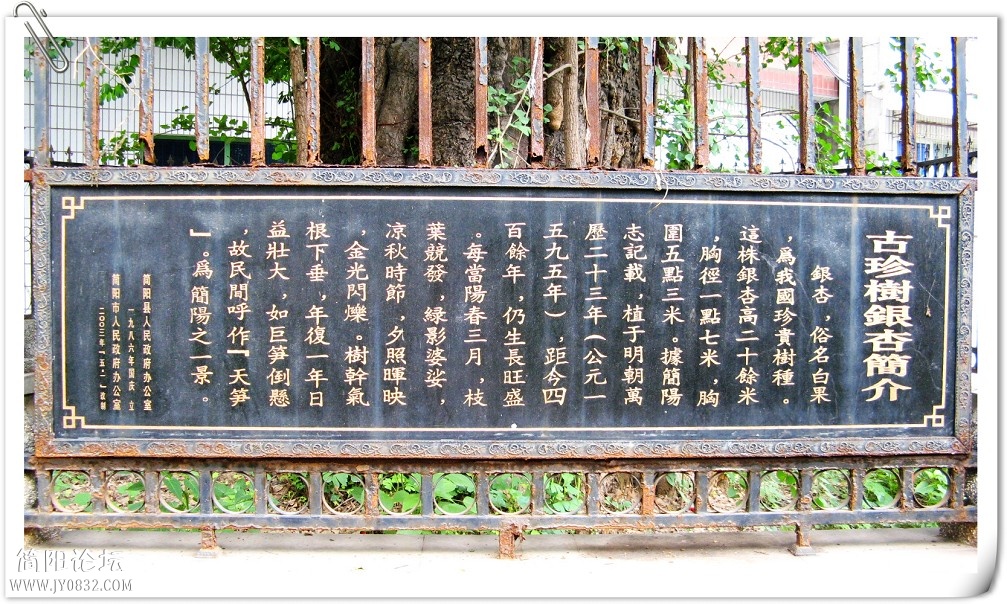 古珍樹銀杏簡介
銀杏，俗名白果
，爲我國珍貴樹種。
這株銀杏高二十餘米
，胸徑一點七米，胸
圍五點三米。據簡陽
志記載，植于明朝萬
歷二十三年（公元一
五九五年），距今四
百餘年，仍生長旺盛
。每當陽春三月，枝
葉競發，緑影婆娑，
凉秋時節，夕照暉映
，金光閃爍。樹幹氣
根下垂，年復一年日
益壯大，如巨笋倒懸
，故民間呼作『天笋
』。爲簡陽之一景。
简阳县人民政府办公室
一九八六年国庆 立
简阳市人民政府办公室
二〇〇三年『五·一』改制
简阳论坛
WWW.JY0832.COM